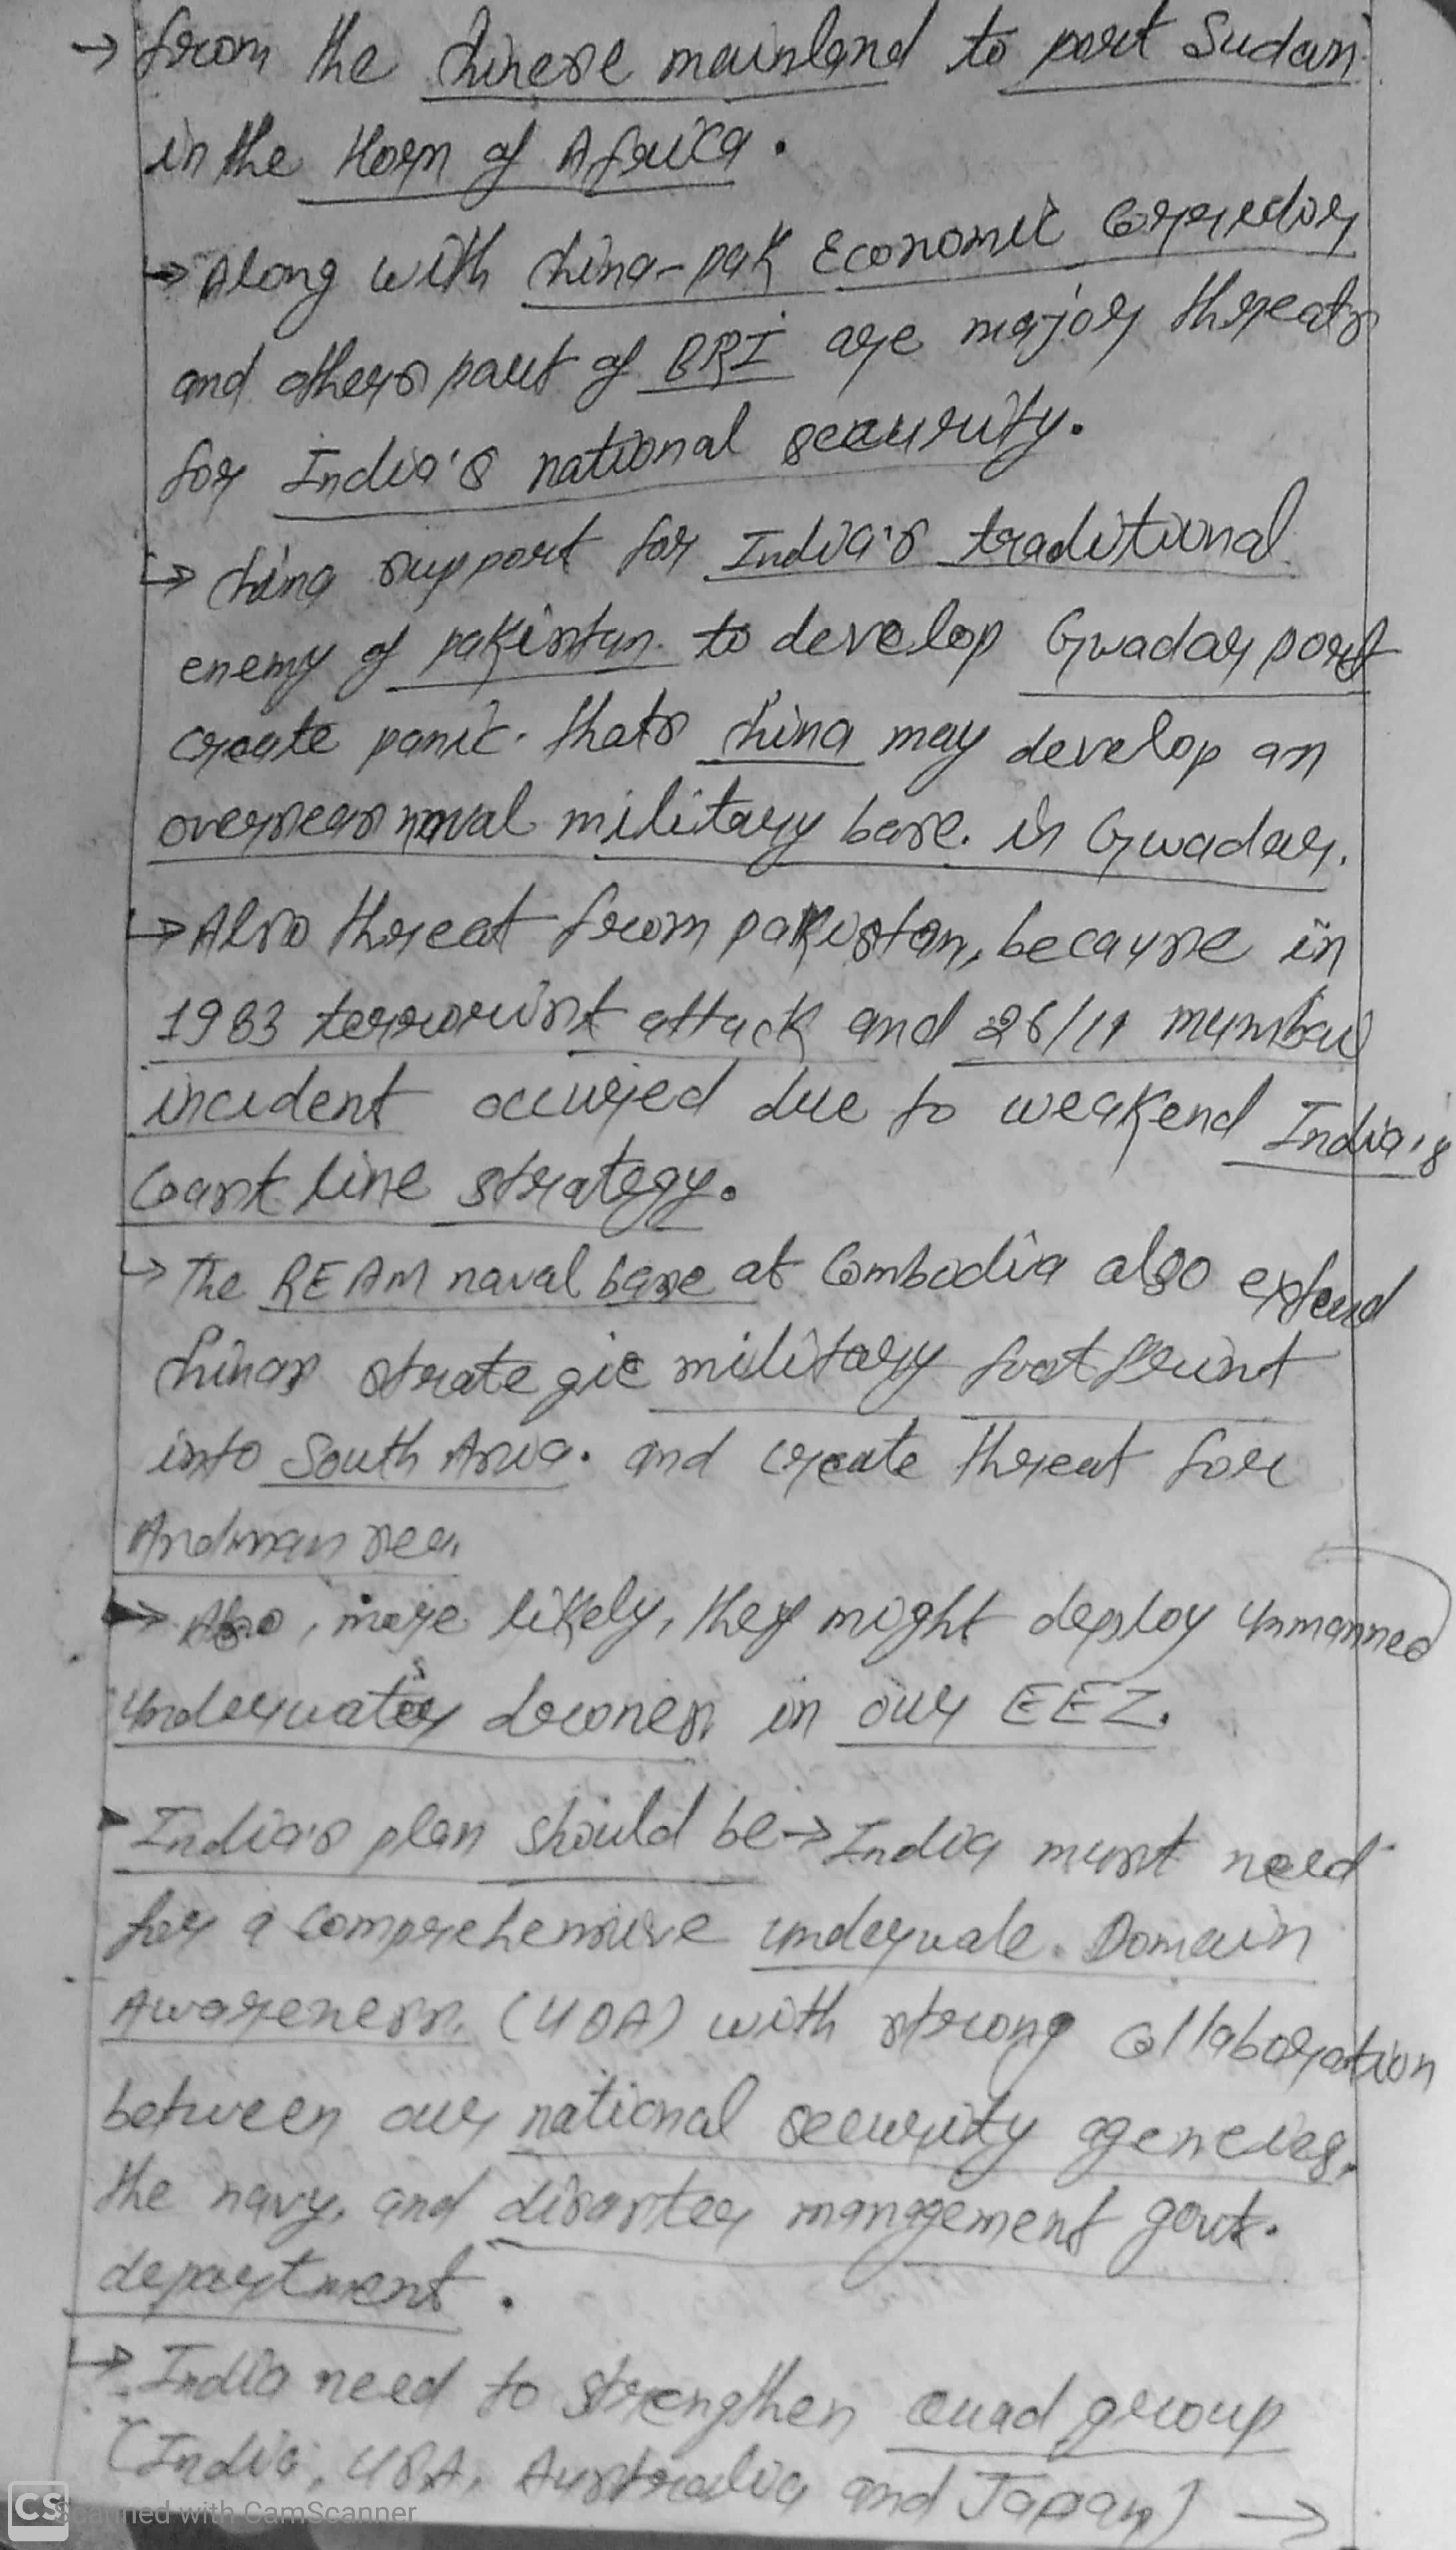 → from the Chinese mainland to port Sudan
in the Horn of Africa.
→ Along with China-pak Economic Corridor
and others part of BRI are major threats
for India's national security.
↳ China support for India's traditional
enemy of pakistan. to develop Gwadar port
create panic. thats China may develop an
overseas naval military base. in Gwadar.
↳ Also threat from pakistan, because in
1983 terrorist attack and 26/11 mumbai
incident occurred due to weakend India's
Coast line strategy.
↳ The REAM naval base at Combodia also extend
Chinas strategic military foot print
into South Asia. and create threat for
Andman sea.
→ Also, more likely, they might deploy unmanned
underwater drones in our EEZ.
▸ India's plan should be → India must need
for a comprehensive underwate. Domain
Awareness. (UDA) with strong collaboration
between our national security agencies,
the navy, and disaster management govt.
department.
↳ India need to strengthen Quad group
(India, USA, Australia and Japan) →
CS Scanned with CamScanner